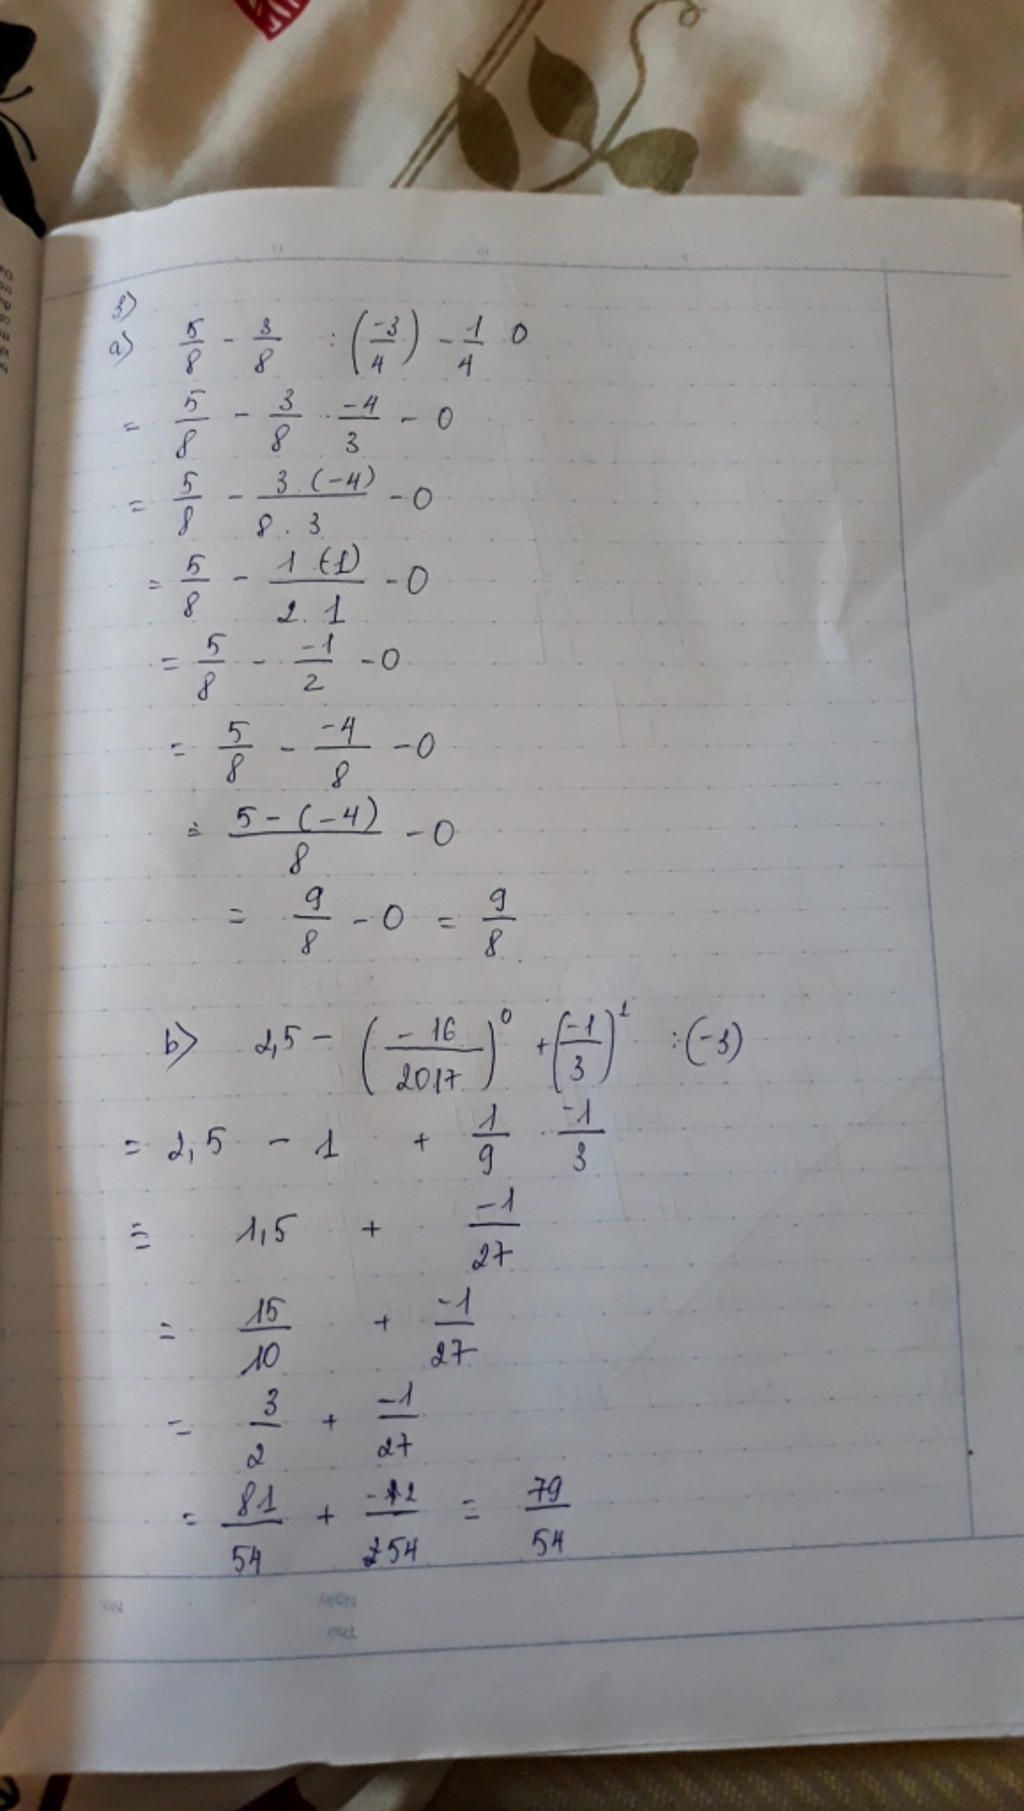 3)
a) 5/8 - 3/8 : (-3/4) - 1/4 0
= 5/8 - 3/8 · -4/3 - 0
= 5/8 - 3.(-4)/8.3 - 0
= 5/8 - 1.(-1)/2.1 - 0
= 5/8 - -1/2 - 0
= 5/8 - -4/8 - 0
= 5-(-4)/8 - 0
= 9/8 - 0 = 9/8
b) 2,5 - (-16/2017)⁰ + (-1/3)² : (-3)
= 2,5 - 1 + 1/9 · -1/3
= 1,5 + -1/27
= 15/10 + -1/27
= 3/2 + -1/27
= 81/54 + -2/54 = 79/54
No
Ngày
Thứ